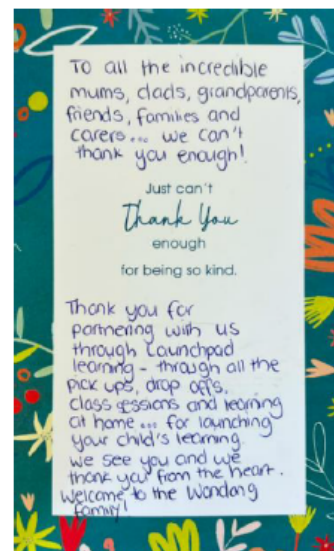 TO all the incredible
mums, dads, grandparents,
friends, families and
carers... we can't
thank you enough!
Just can't
Thank You
enough
for being so kind.
Thank you for
partnering with us
through Launchpad
learning - through all the
pick ups, drop offs,
class sessions and learning
at home... for launching
your child's learning.
We see you and we
thank you from the heart.
Welcome to the Wondang
family!